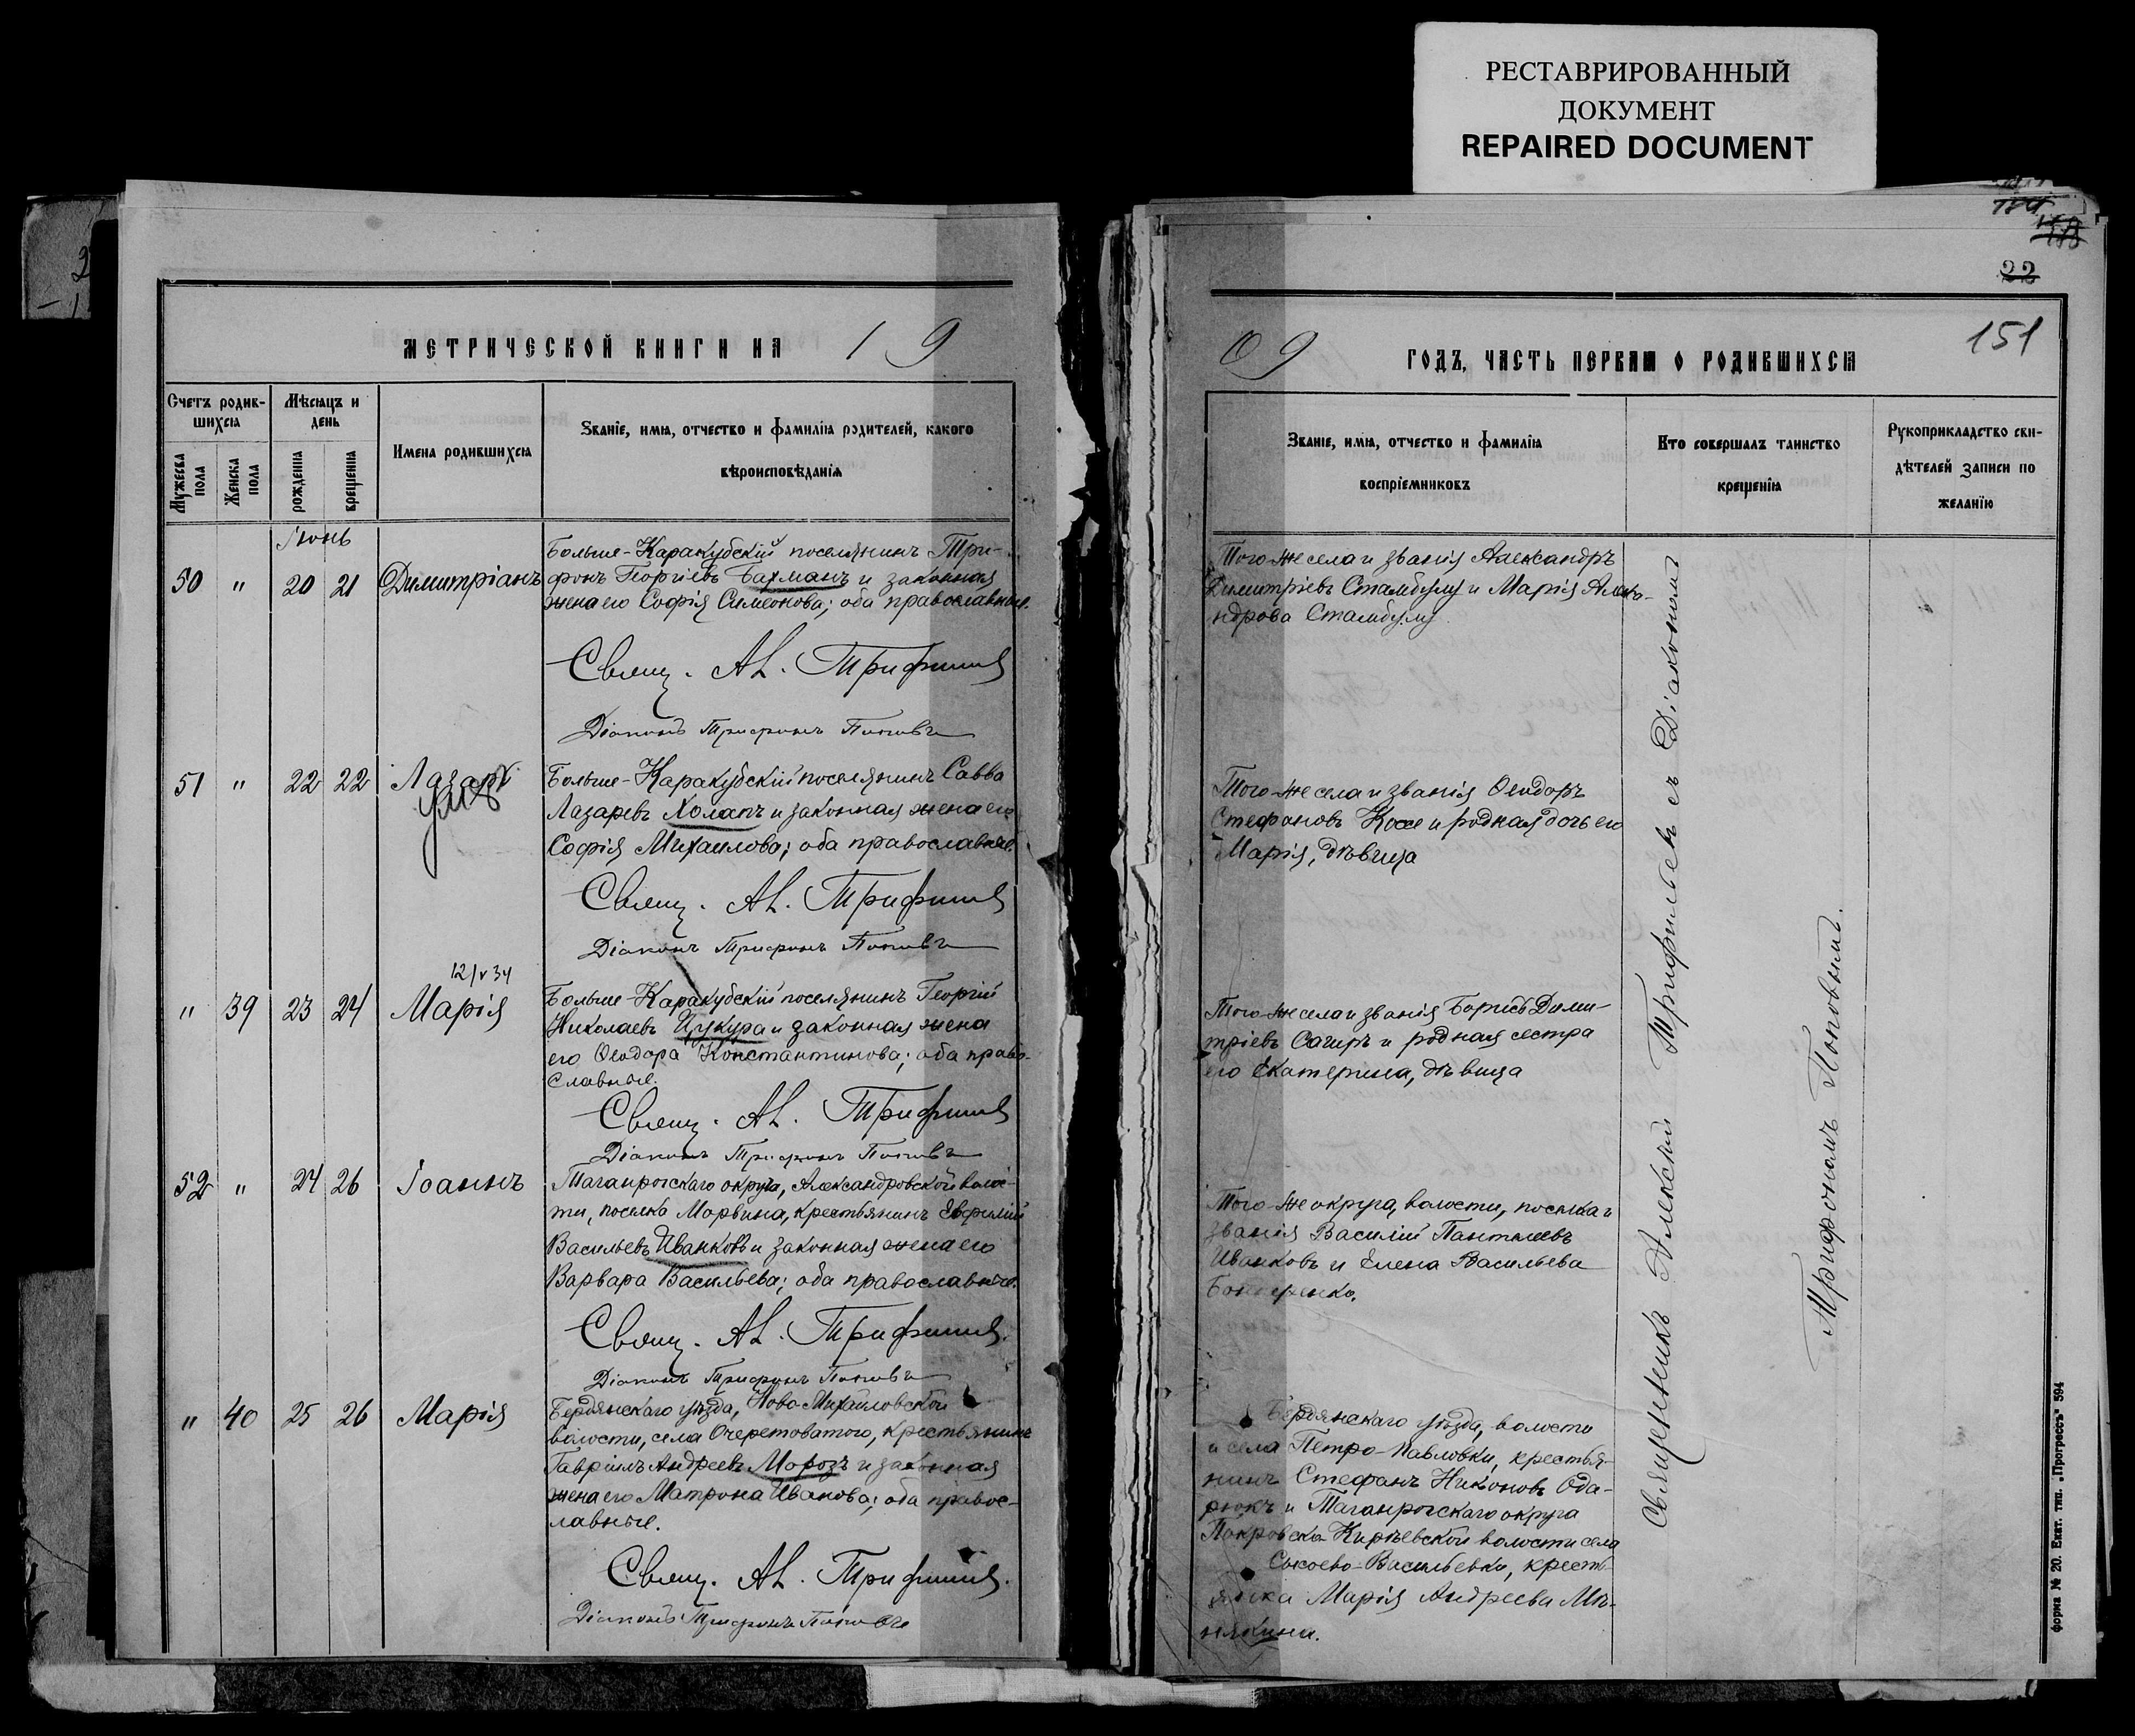 РЕСТАВРИРОВАННЫЙ
ДОКУМЕНТ
REPAIRED DOCUMENT
22
151
МЕТРИЧЕСКОЙ КНИГИ НА 19
09 ГОДЪ, ЧАСТЬ ПЕРВАЯ О РОДИВШИХСЯ
Счетъ родив-
шихся
Мужеска пола
Женска пола
Мѣсяцъ и
день
рожденія
крещенія
Имена родившихся
Званіе, имя, отчество и фамилія родителей, какого
вѣроисповѣданія
Званіе, имя, отчество и фамилія
воспріемниковъ
Кто совершалъ таинство
крещенія
Рукоприкладство сви-
дѣтелей записи по
желанію
Іюнь
50 " 20 21 Димитріанъ
Больше-Каракубскій поселянинъ Три-
фонъ Георгіевъ Бахманъ и законная
жена его Софія Симеонова; оба православные.
Свящ. Ал. Трифильев
Діаконъ Трифонъ Поповъ
Того-же села и званія Александръ
Димитріевъ Стамбулу и Марія Алекса-
ндрова Стамбулу
51 " 22 22 Лазарь
умъ
Больше-Каракубскій поселянинъ Савва
Лазаревъ Холапъ и законная жена его
Софія Михаилова; оба православные.
Свящ. Ал. Трифильев
Діаконъ Трифонъ Поповъ
Того-же села и званія Ѳеодоръ
Стефановъ Коссе и родная дочь его
Марія, дѣвица
12/v 34
" 39 23 24 Марія
Больше-Каракубскій поселянинъ Георгій
Николаевъ Цукура и законная жена
его Ѳеодора Константинова; оба право-
славные.
Свящ. Ал. Трифильев
Діаконъ Трифонъ Поповъ
Того-же села и званія Борисъ Дими-
тріевъ Сагиръ и родная сестра
его Екатерина, дѣвица
52 " 24 26 Іоаннъ
Таганрогскаго округа, Александровской волос-
ти, поселка Марвина, крестьянинъ Евфимій
Васильевъ Иванковъ и законная жена его
Варвара Васильева; оба православные.
Свящ. Ал. Трифильев.
Діаконъ Трифонъ Поповъ
Того-же округа, волости, поселка и
званія Василій Пантелеевъ
Иванковъ и Елена Васильева
Бондаренко.
" 40 25 26 Марія
Бердянскаго уѣзда, Ново-Михайловской
волости, села Очеретоватого, крестьянинъ
Гавріилъ Андреевъ Морозъ и законная
жена его Матрона Иванова; оба правос-
лавные.
Свящ. Ал. Трифильев.
Діаконъ Трифонъ Поповъ
Бердянскаго уѣзда, волости
и села Петро-Павловки, крестья-
нинъ Стефанъ Никоновъ Ода-
рюкъ и Таганрогскаго округа
Покровско-Кирѣевской волости села
Васильевки, кресть-
янка Марія Андреева
Священникъ Алексѣй Трифильевъ съ Діакономъ
Трифономъ Поповымъ.
Форма № 20. Екат. тип. „Прогрессъ" 594